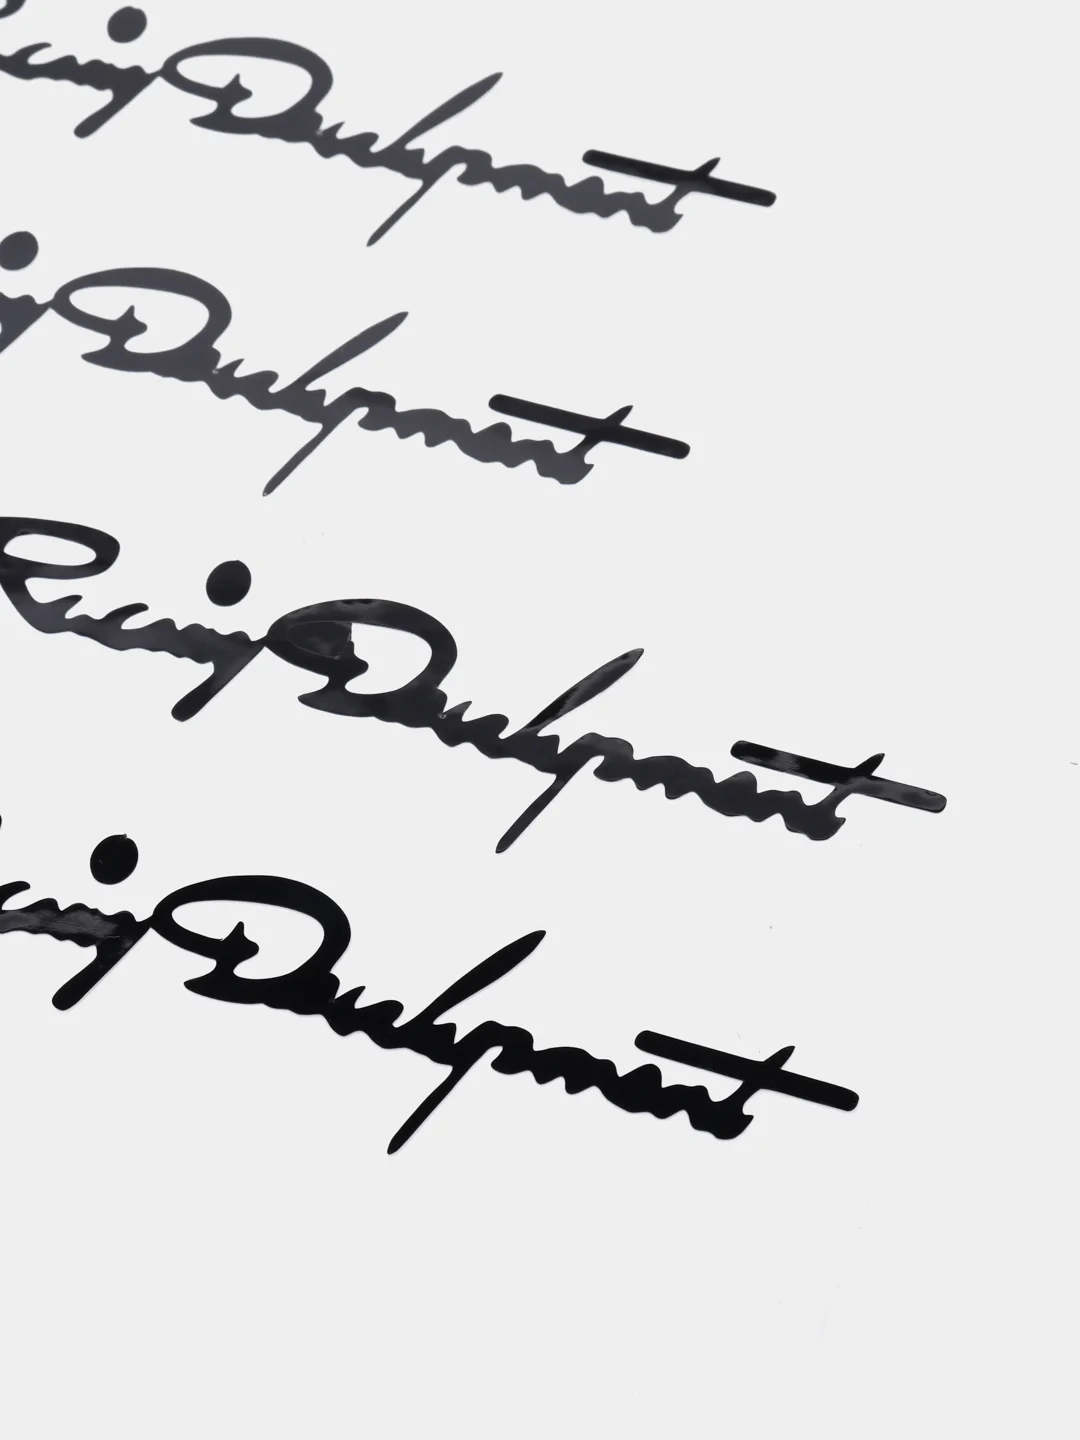 Racing Development
Racing Development
Racing Development
Racing Development